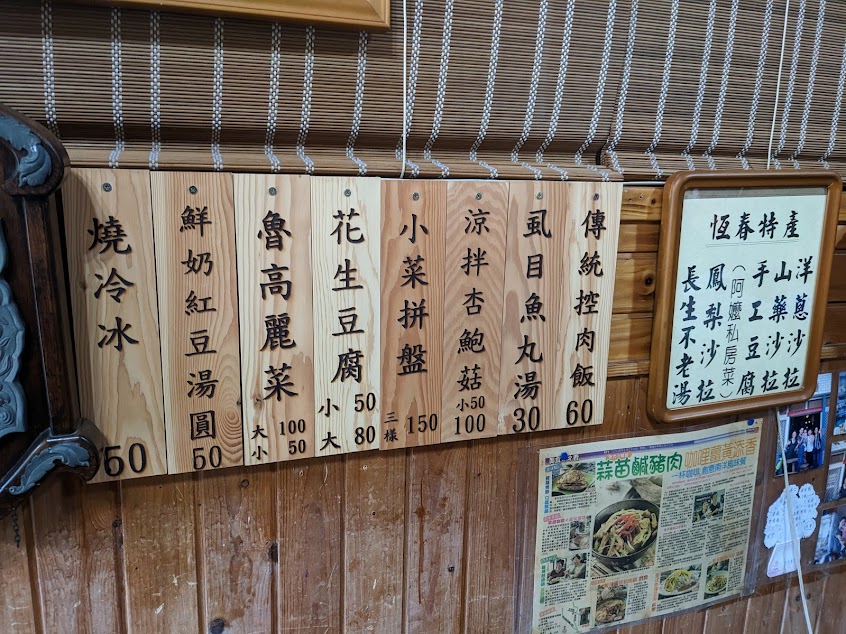 傳統控肉飯 60
虱目魚丸湯 30
涼拌杏鮑菇 小50 100
小菜拼盤 三樣 150
花生豆腐 小 50 大 80
魯高麗菜 大 100 小 50
鮮奶紅豆湯圓 50
燒冷冰 50
恆春特產
洋蔥沙拉
山藥沙拉
手工豆腐
(阿嬤私房菜)
鳳梨沙拉
長生不老湯
蒜苗鹹豬肉